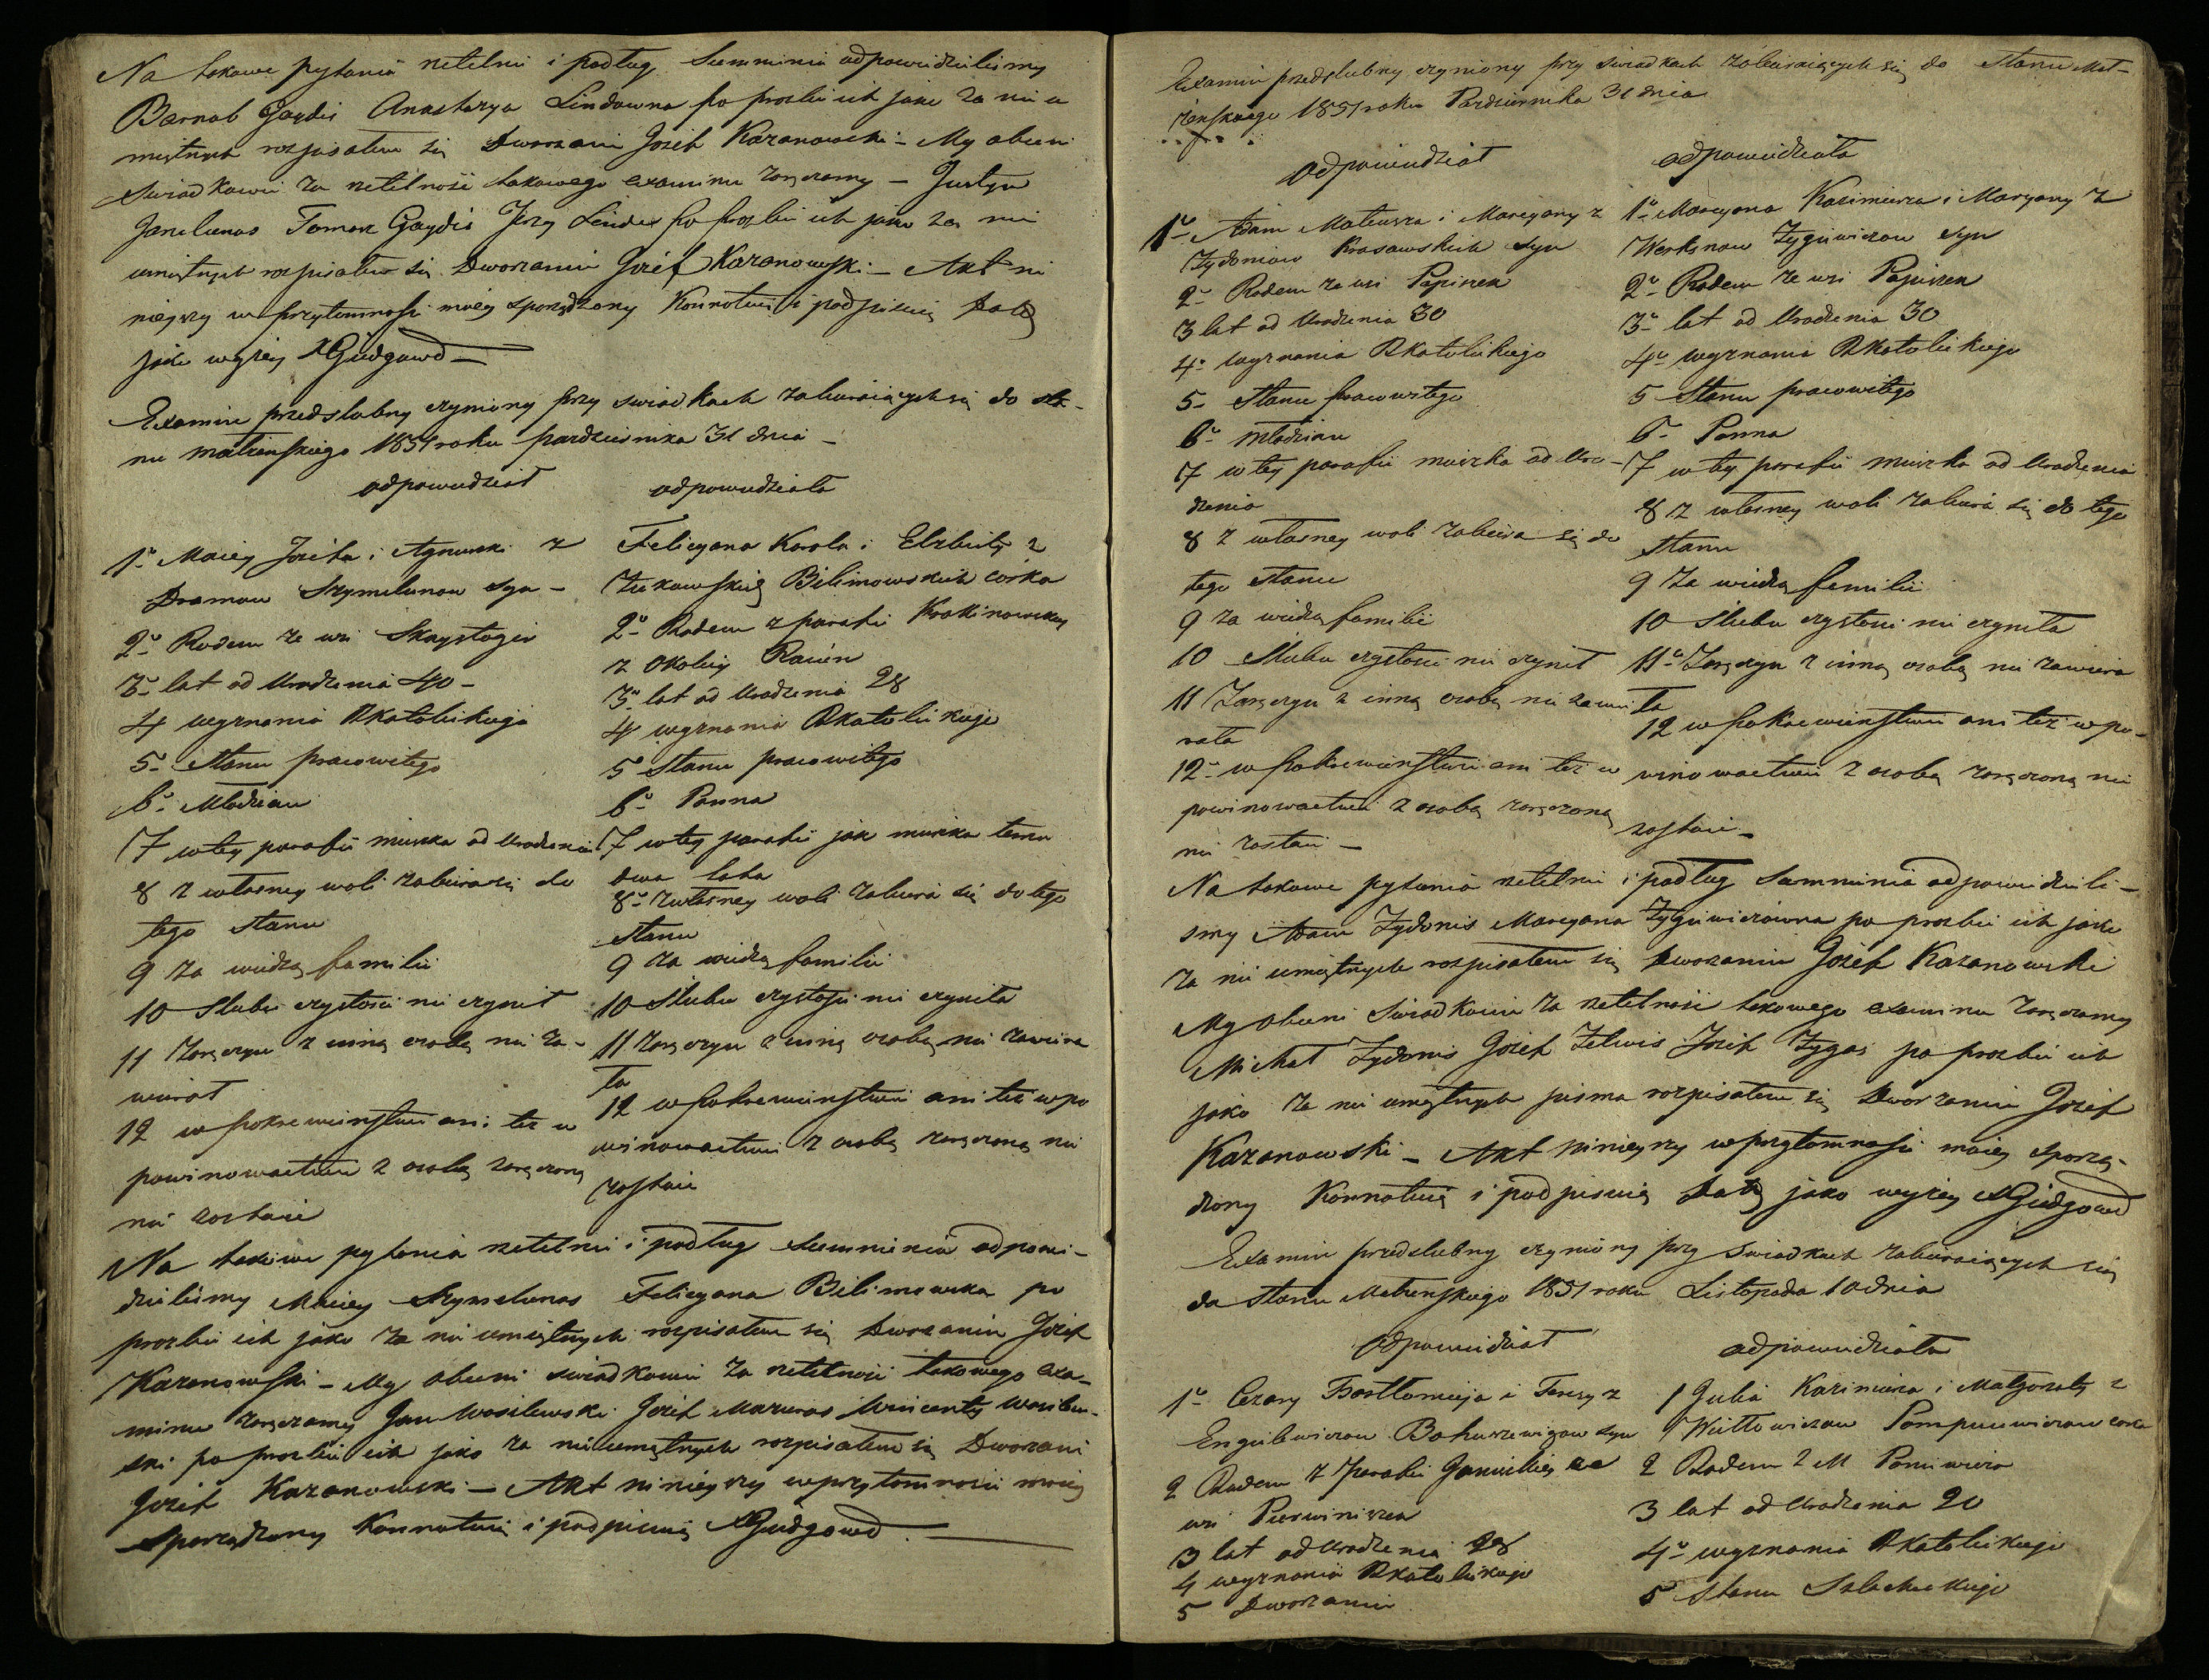 Na takowe pytania rzetelnie i podług Summienia odpowiedzielismy
Barnab Gaydis Anastazya Lindowna po prozbie ich jako za nie u
miętnych rozpisałem się Dworzanin Jozef Kazanowski – My obecni
Swiadkowie za rzetelność takowego examinu zaręczamy – Justyn
Tomasz Gaydis Jerzy Linde po prozbie ich jako za nie
umiętnych rozpisałem się Dworzanin Jozef Kazanowski – Akt ni
nieyszy w przytomnosci moiey sporządzony Konnotuię i podpisuię Datą
jako wyżey XGiedgowd –
Examin przedslubny czyniony przy swiadkach zabieraiących się do sta-
nu małżenskiego 1851 roku pazdziernika 31 dnia –
odpowiedział
odpowiedziała
1o Maciey Jozefa i Agnieszki z
Dramow Szymelunow syn –
2o Rodem ze wsi Skrystogir
3o lat od Urodzenia 40 –
4 wyznania RKatolickiego
5– Stanu pracowitego
6o Młodzian
7 w tey parafii mieszka od Urodzenia
8 z własney woli zabiera się do
tego stanu
9 za wiedzą familii
10 Slubu czystosci nie czynił
11 Zaręczyn z inną osobą nie za-
wierał
12 w pokrewienstwie ani też w
powinowactwie z osobą zaręczoną
nie zostaie
Felicyana Karola i Elzbiety z
Żukowskich Bilimowskich córka
2o Rodem z parafii Krakinowskiey
z Okolicy
3o lat od Urodzenia 28
4 wyznania RKatolickiego
5 Stanu pracowitego
6o Panna
7 w tey parafii jak mieszka temu
dwa lata
8o z własney woli zabiera się do tego
stanu
9 za wiedzą familii
10 Slubu czystosci nie czyniła
11 Zaręczyn z inną osobą nie zawiera
ła
12 w pokrewienstwie ani też w po
winowactwie z osobą zaręczoną nie
zostaie
Na takowe pytania rzetelnie i podług Summienia odpowie-
dzielismy Maciey Szymelunas Felicyana Bilimowska po
prozbie ich jako za nie umiętnych rozpisałem się Dworzanin Jozef
Kazanowski – My obecni swiadkowie za rzetelność takowego exa-
minu zaręczamy Jan Wasilewski Jozef Mazuras Wincenty Wasilew-
ski po prozbie ich jako za nie umiętnych rozpisałem się Dworzani
Jozef Kazanowski – Akt ninieyszy w przytomnosci moiey
sporządzony Konnotuię i podpisuię XGiedgowd –
Examin przedslubny czyniony przy swiadkach zabieraiących się do Stanu Mał-
żenskiego 1851 roku Pazdziernika 31 dnia
odpowiedział
odpowiedziała
1o Adam Mateusza i Maryany z
Żydoniow Krasawskich syn
2o Rodem ze wsi Papiszek
3 lat od Urodzenia 30
4o wyznania RKatolickiego
5– Stanu pracowitego
6o Młodzian
7 w tey parafii mieszka od Uro-
dzenia
8 z własney woli zabiera się do
tego stanu
9 za wiedzą familii
10 Slubu czystosci nie czynił
11 Zaręczyn z inną osobą nie zawie
rała
12o w pokrewienstwie ani też w
powinowactwie z osobą zaręczoną
nie zostaie –
1o Maryana Kazimierza i Maryany z
Zyguiwiczow syn
2o Rodem ze wsi Papiszek
3o lat od Urodzenia 30
4o wyznania RKatolickiego
5 Stanu pracowitego
6– Panna
7 w tey parafii mieszka od Urodzenia
8 z własney woli zabiera się do tego
stanu
9 za wiedzą familii
10 Slubu czystosci nie czyniła
11o Zaręczyn z inną osobą nie zawiera
ła
12 w pokrewienstwie ani też w po-
winowactwie z osobą zaręczoną nie
zostaie –
Na takowe pytania rzetelnie i podług Summienia odpowiedzieli-
smy Adam Żydonis Maryana Zyguiwiczowna po prozbie ich jako
za nie umiętnych rozpisałem się Dworzanin Jozef Kazanowski
My obecni Swiadkowie za rzetelność takowego examinu zaręczamy
Michał Żydonis Jozef Zelwis Jozef Zygas po prozbie ich
jako za nie umiętnych pisma rozpisałem się Dworzanin Jozef
Kazanowski – Akt ninieyszy w przytomnosci moiey sporzą-
dzony Konnotuię i podpisuię Datą jako wyżey XGiedgowd
Examin przedslubny czyniony przy swiadkach zabieraiących się
do Stanu Małżenskiego 1851 roku Listopada 10 dnia
odpowiedział
odpowiedziała
1o Cezary Bartłomieja i Teresy z
Engielewiczow Bohuszewiczow syn
2 Rodem z Parafii ze
wsi
3 lat od Urodzenia 28
4 wyznania RKatolickiego
5 Dworzanin
1 Julia Kazimierza i Małgorzaty z
Witkowiczow Pompuewiczow corka
2 Rodem z M Poniewieża
3 lat od Urodzenia 20
4o wyznania RKatolickiego
5 Stanu Szlacheckiego